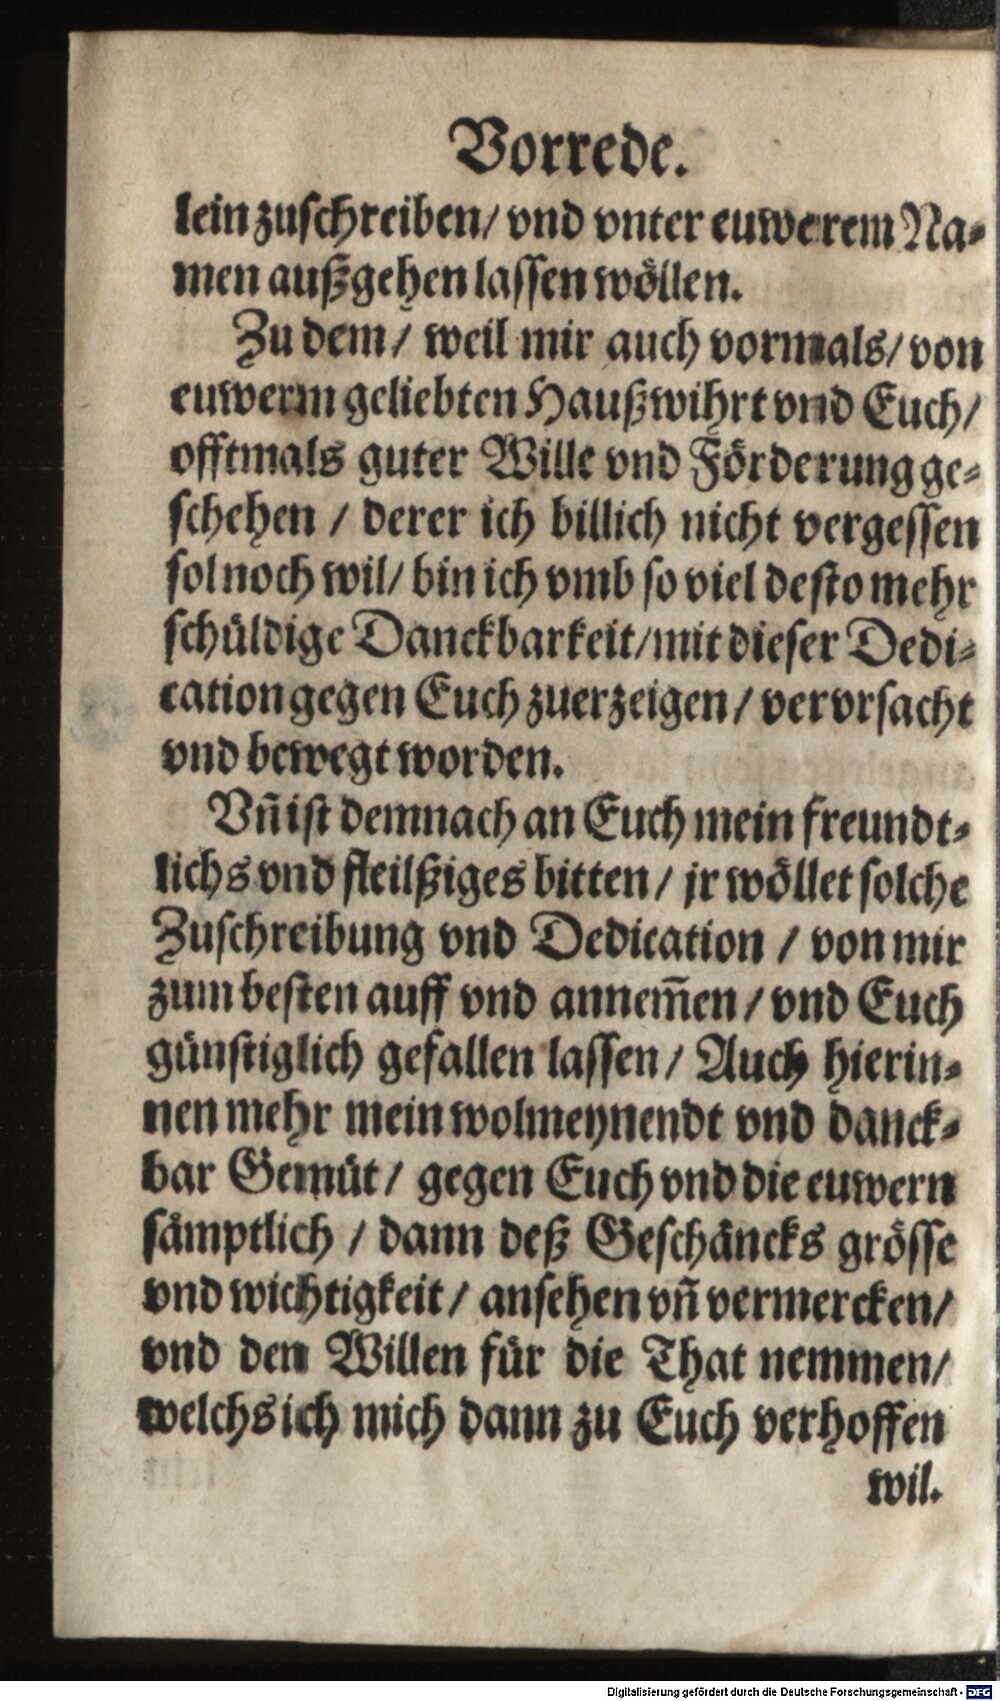 Vorrede.
lein zuschreiben/ vnd vnter euwerem Na-
men außgehen lassen wöllen.
Zu dem/ weil mir auch vormals/ von
euwerm geliebten Haußwihrt vnd Euch/
offtmals guter Wille vnd Förderung ge-
schehen / derer ich billich nicht vergessen
sol noch wil/ bin ich vmb so viel desto mehr
schüldige Danckbarkeit/ mit dieser Dedi-
cation gegen Euch zuerzeigen / vervrsacht
vnd bewegt worden.
Vñ ist demnach an Euch mein freundt-
lichs vnd fleilßiges bitten / jr wöllet solche
Zuschreibung vnd Dedication / von mir
zum besten auff vnd annem̃en / vnd Euch
günstiglich gefallen lassen / Auch hierin-
nen mehr mein wolmeynendt vnd danck-
bar Gemüt / gegen Euch vnd die euwern
sämptlich / dann deß Geschäncks grösse
vnd wichtigkeit / ansehen vñ vermercken/
vnd den Willen für die That nemmen/
welchs ich mich dann zu Euch verhoffen
wil.
Digitalisierung gefördert durch die Deutsche Forschungsgemeinschaft - DFG